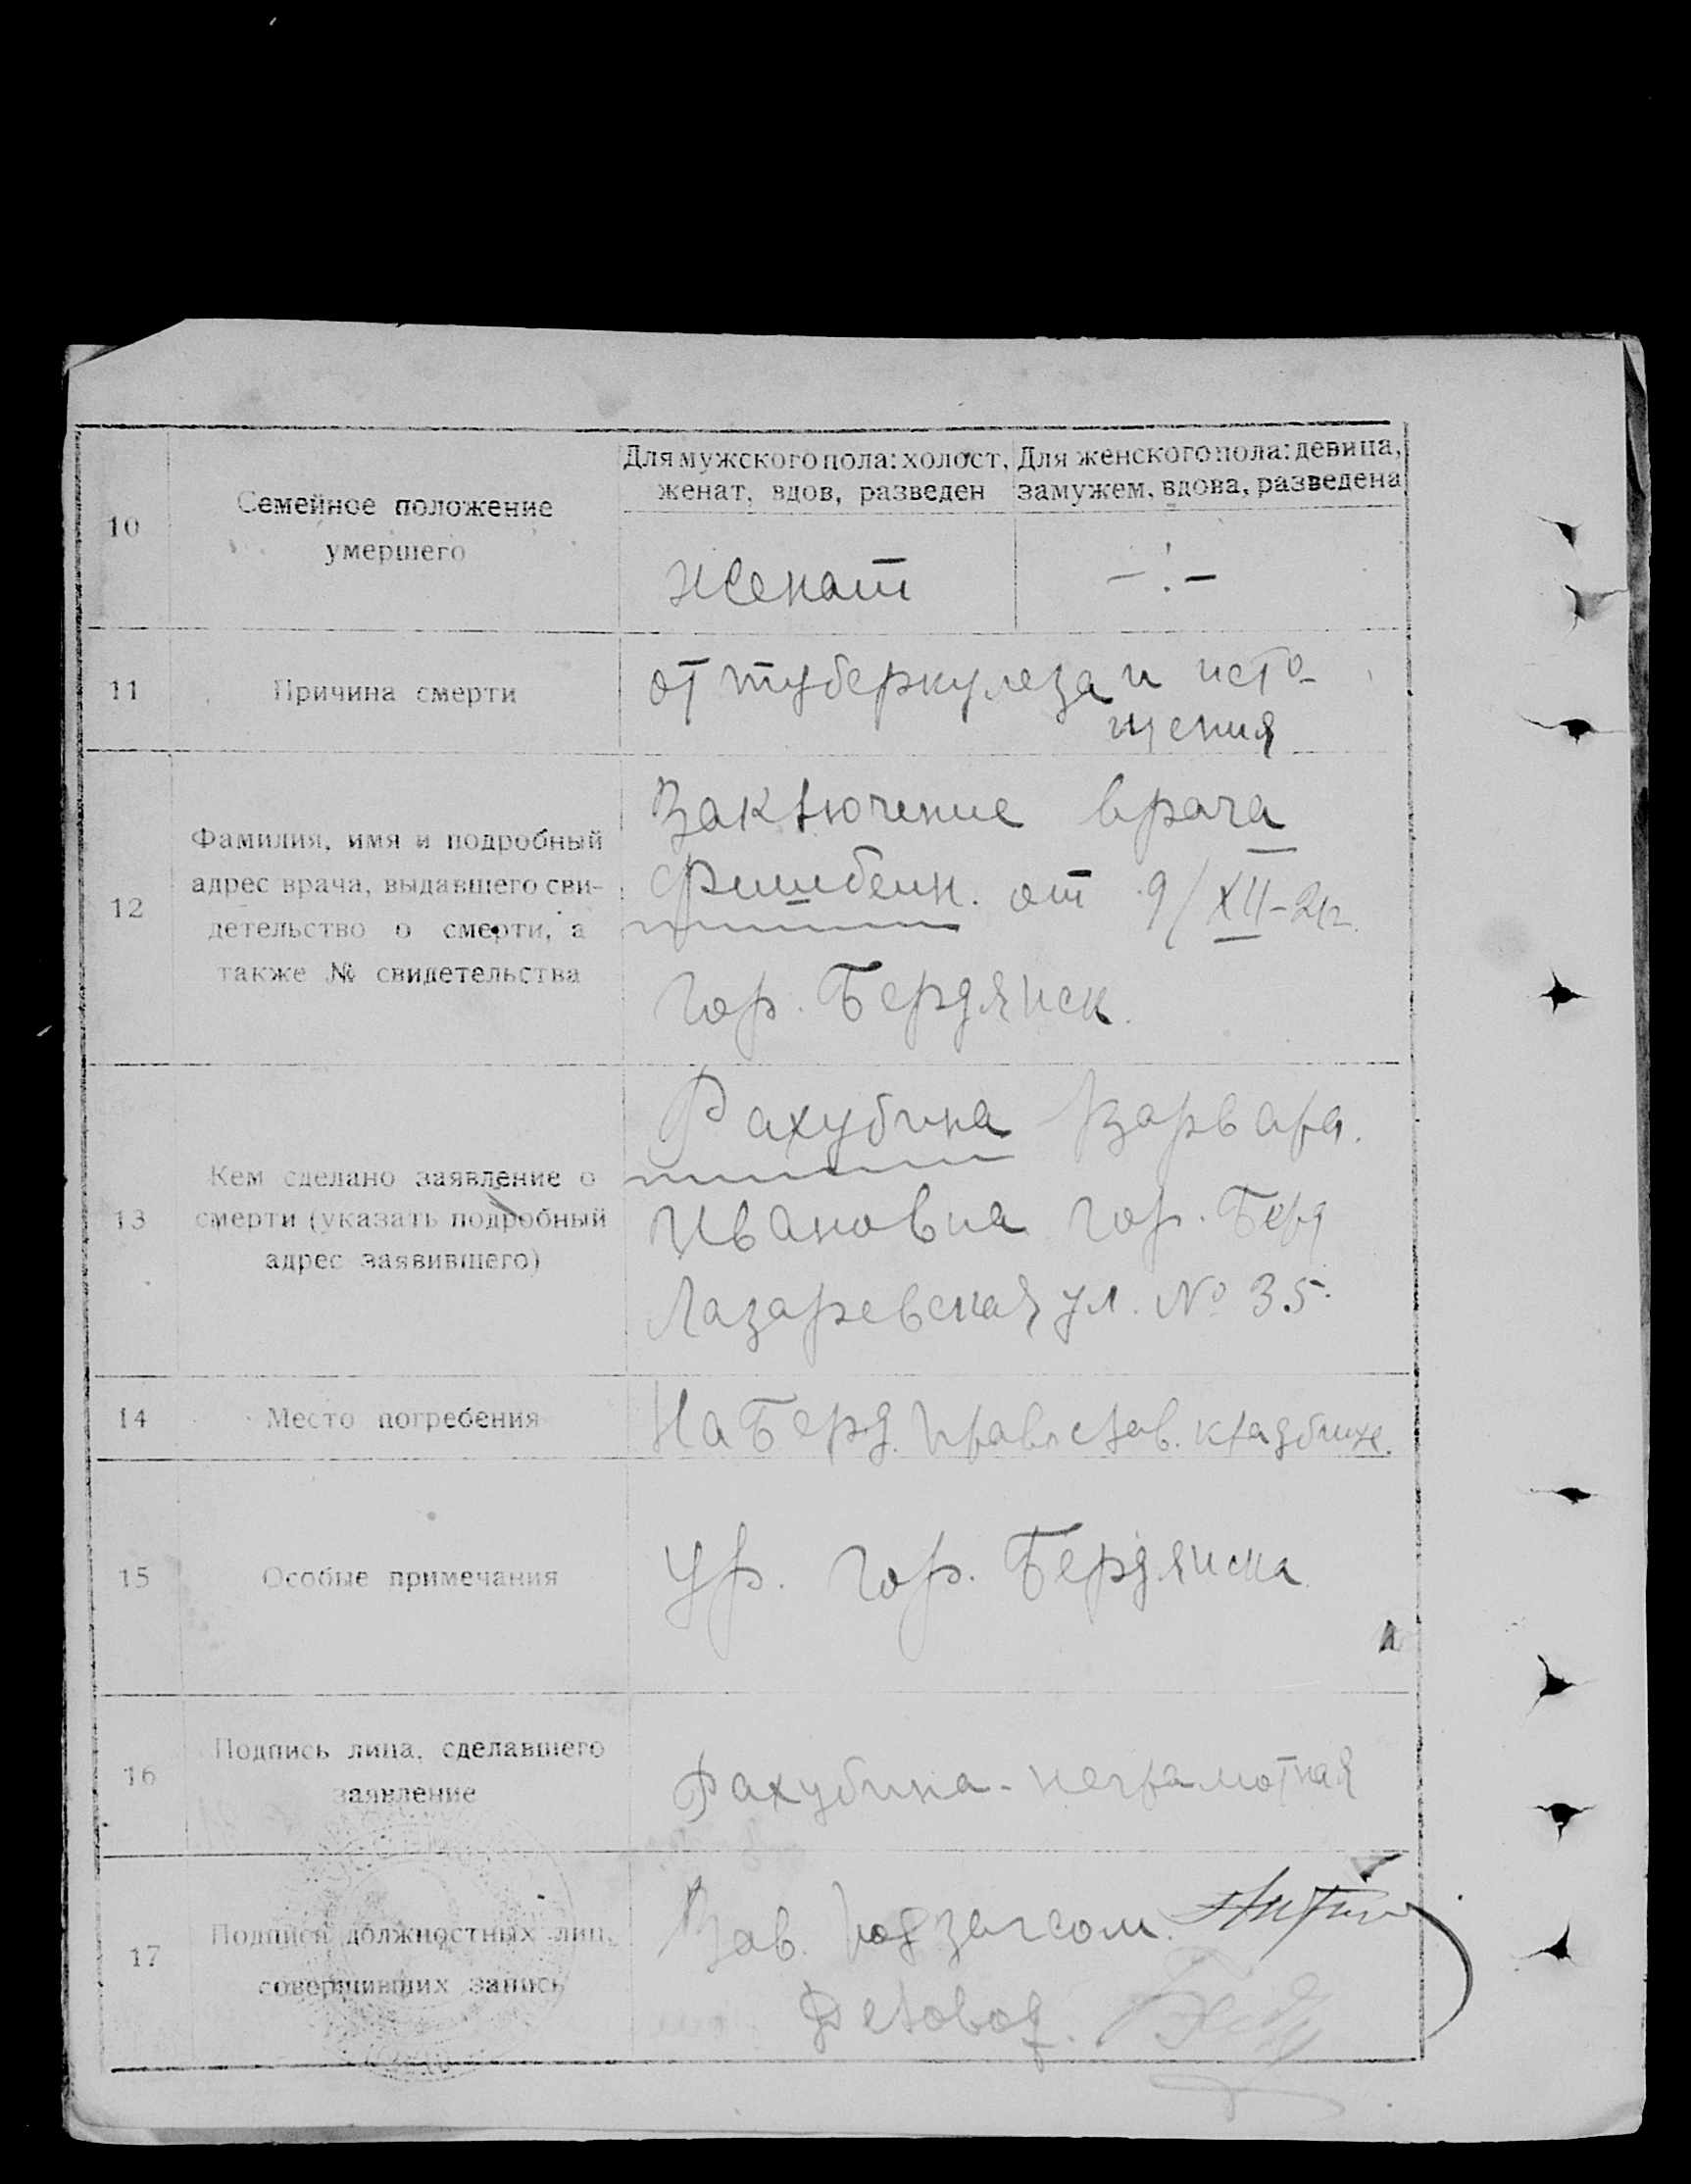 10
Семейное положение
умершего
Для мужского пола: холост,
женат, вдов, разведен
Для женского пола: девица,
замужем, вдова, разведена
женат
11
Причина смерти
от туберкулеза и исто-
щения
12
Фамилия, имя и подробный
адрес врача, выдавшего сви-
детельство о смерти, а
также № свидетельства
Заключение врача
от 9/XII-21г.
гор. Бердянск.
13
Кем сделано заявление о
смерти (указать подробный
адрес заявившего)
Рахубина Варвара.
Ивановна гор. Берд
Лазаревская ул. № 35.
14
Место погребения
На Берд. Православ. кладбище.
15
Особые примечания
Ур. гор. Бердянска
16
Подпись лица, сделавшего
заявление
Рахубина - неграмотная
17
Подписи должностных лиц,
совершивших запись
Зав. подзагсом.
Деловод.